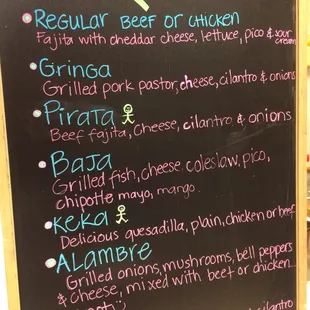 Regular Beef or Chicken
Fajita with cheddar cheese, lettuce, pico & sour cream
Gringa
Grilled pork pastor, cheese, cilantro & onions
Pirata
Beef fajita, Cheese, cilantro & onions
Baja
Grilled fish, cheese, coleslaw, pico,
chipotle mayo, mango.
Keka
Delicious quesadilla, plain, chicken or beef
Alambre
Grilled onions, mushrooms, bell peppers
& Cheese, mixed with beef or chicken
cilantro